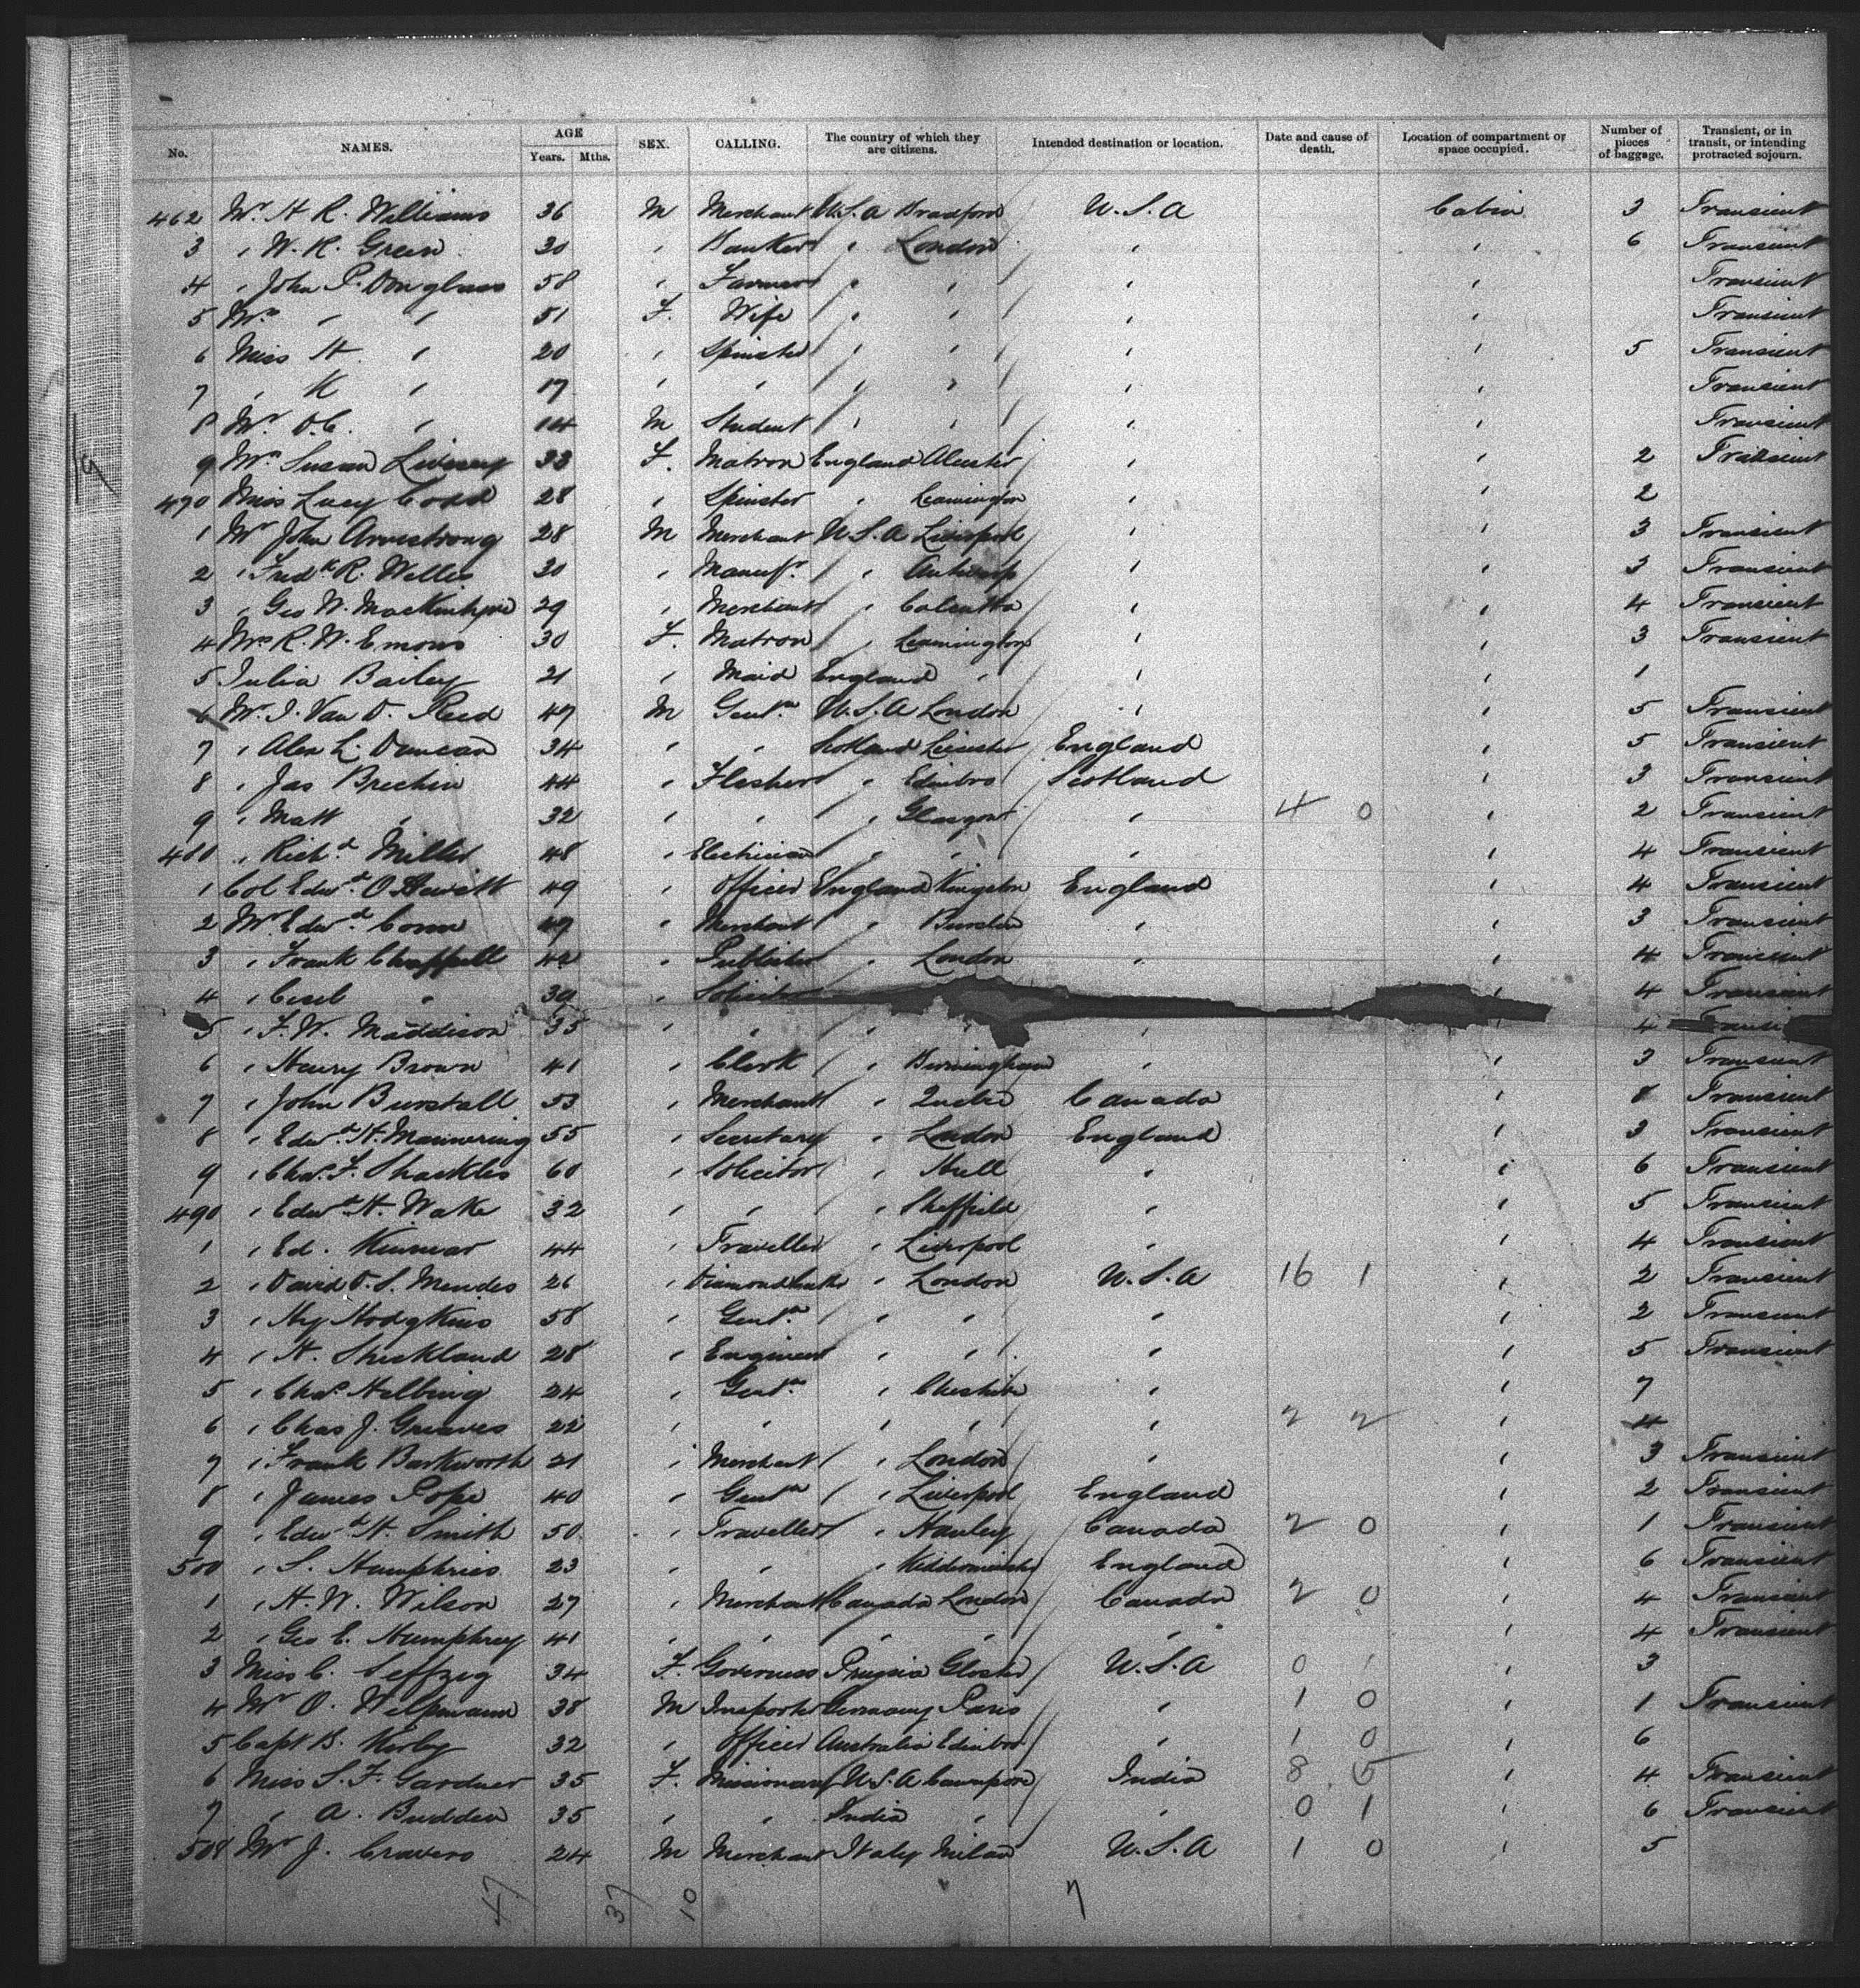 No. NAMES. AGE Years. Mths. SEX. CALLING. The country of which they are citizens. Intended destination or location. Date and cause of death. Location of compartment or space occupied. Number of pieces of baggage. Transient, or in transit, or intending protracted sojourn.
462 Mr H R. Williams 36 M Merchant U.S.A Bradford U.S.A Cabin 3 Transient
3 " W. R. Green 30 " Banker " London " " 6 Transient
4 " John P. Douglass 58 " Farmer " " " " Transient
5 Mrs " " 51 F. Wife " " " " Transient
6 Miss H. " 20 " Spinster " " " " 5 Transient
7 " K " 17 " " " " " " Transient
8 Mr O.C. " 14 M Student " " " " Transient
9 Mrs Susan Livesey 33 F. Matron England Alcester " " 2 Transient
470 Miss Lucy Codd 28 " Spinster " Leamington " " 2
1 Mr John Armstrong 28 M Merchant U.S.A Liverpool " " 3 Transient
2 " Fredk R. Willis 30 " Manufr. " Antwerp " " 3 Transient
3 " Geo W. MacKintyre 29 " Merchant " Calcutta " " 4 Transient
4 Mrs R. W. Emons 30 F. Matron " Leamington " " 3 Transient
5 Julia Bailey 21 " Maid England " " " 1
6 Mr. J. Van D. Reed 47 M Gentn U.S.A London " " 5 Transient
7 " Alex L. Duncan 34 " " Scotland Leicester England " 5 Transient
8 " Jas Brechin 44 " Flesher " Edinbro Scotland " 3 Transient
9 " Matt " 32 " " " Glasgow " 4 0 " 2 Transient
480 " Richd Miller 48 " Electrician " " " " 4 Transient
1 Col Edwd. O Hewitt 49 " Officer England Kingston England " 4 Transient
2 Mr Edwd. Corn 49 " Merchant " Burslem " " 3 Transient
3 " Frank Chappell 42 " Publisher " London " " 4 Transient
4 " Cecil " 30 " Solicitor " 4 Transient
5 " F. W. Maddison 35 " " " " " 4 Transi
6 " Henry Brown 41 " Clerk " Birmingham " " 3 Transient
7 " John Burstall 53 " Merchant " Quebec Canada " 8 Transient
8 " Edwd. H. Mannering 55 " Secretary " London England " 3 Transient
9 " Chas. F. Shackles 60 " Solicitor " Hull " " 6 Transient
490 " Edwd. H. Wake 32 " " " Sheffield " " 5 Transient
1 " Ed. Kinnear 44 " Traveller " Liverpool " " 4 Transient
2 " David D. S. Mendes 26 " Diamond Cutter " London U.S.A 16 1 " 2 Transient
3 " Hy Hodgkins 58 " Gentn " " " " 2 Transient
4 " H. Strickland 28 " Engineer " " " " 5 Transient
5 " Chas. Helbing 24 " Gentn. " Cheshire " " 7
6 " Chas J. Greaves 22 " " " " " 2 2 " 4
7 " Frank Barkworth 21 " Merchant " London " " 3 Transient
8 " James Pope 40 " Gentn " Liverpool England " 2 Transient
9 " Edwd. H. Smith 50 " Traveller " Hanley Canada 2 0 " 1 Transient
500 " S. Humphries 23 " " " Kidderminster England " 6 Transient
1 " H. W. Wilson 27 " Merchant Canada London Canada 2 0 " 4 Transient
2 " Geo E. Humphrey 41 " " " " " " 4 Transient
3 Miss C. Seffzig 34 F. Governess Prussia Gloster U.S.A 0 1 " 3
4 Mr O. Helpmann 38 M Importer Germany Paris " 1 0 " 1 Transient
5 Capt B. Kirby 32 " Officer Australia Edinbro " 1 0 " 6
6 Miss S. F. Gardner 35 F. Missionary U.S.A Cawnpore India 8 5 " 4 Transient
7 " A. Budden 35 " " India " " 0 1 " 6 Transient
508 Mr J. Cravero 24 M Merchant Italy Milan U.S.A 1 0 " 5
47 37 10 7